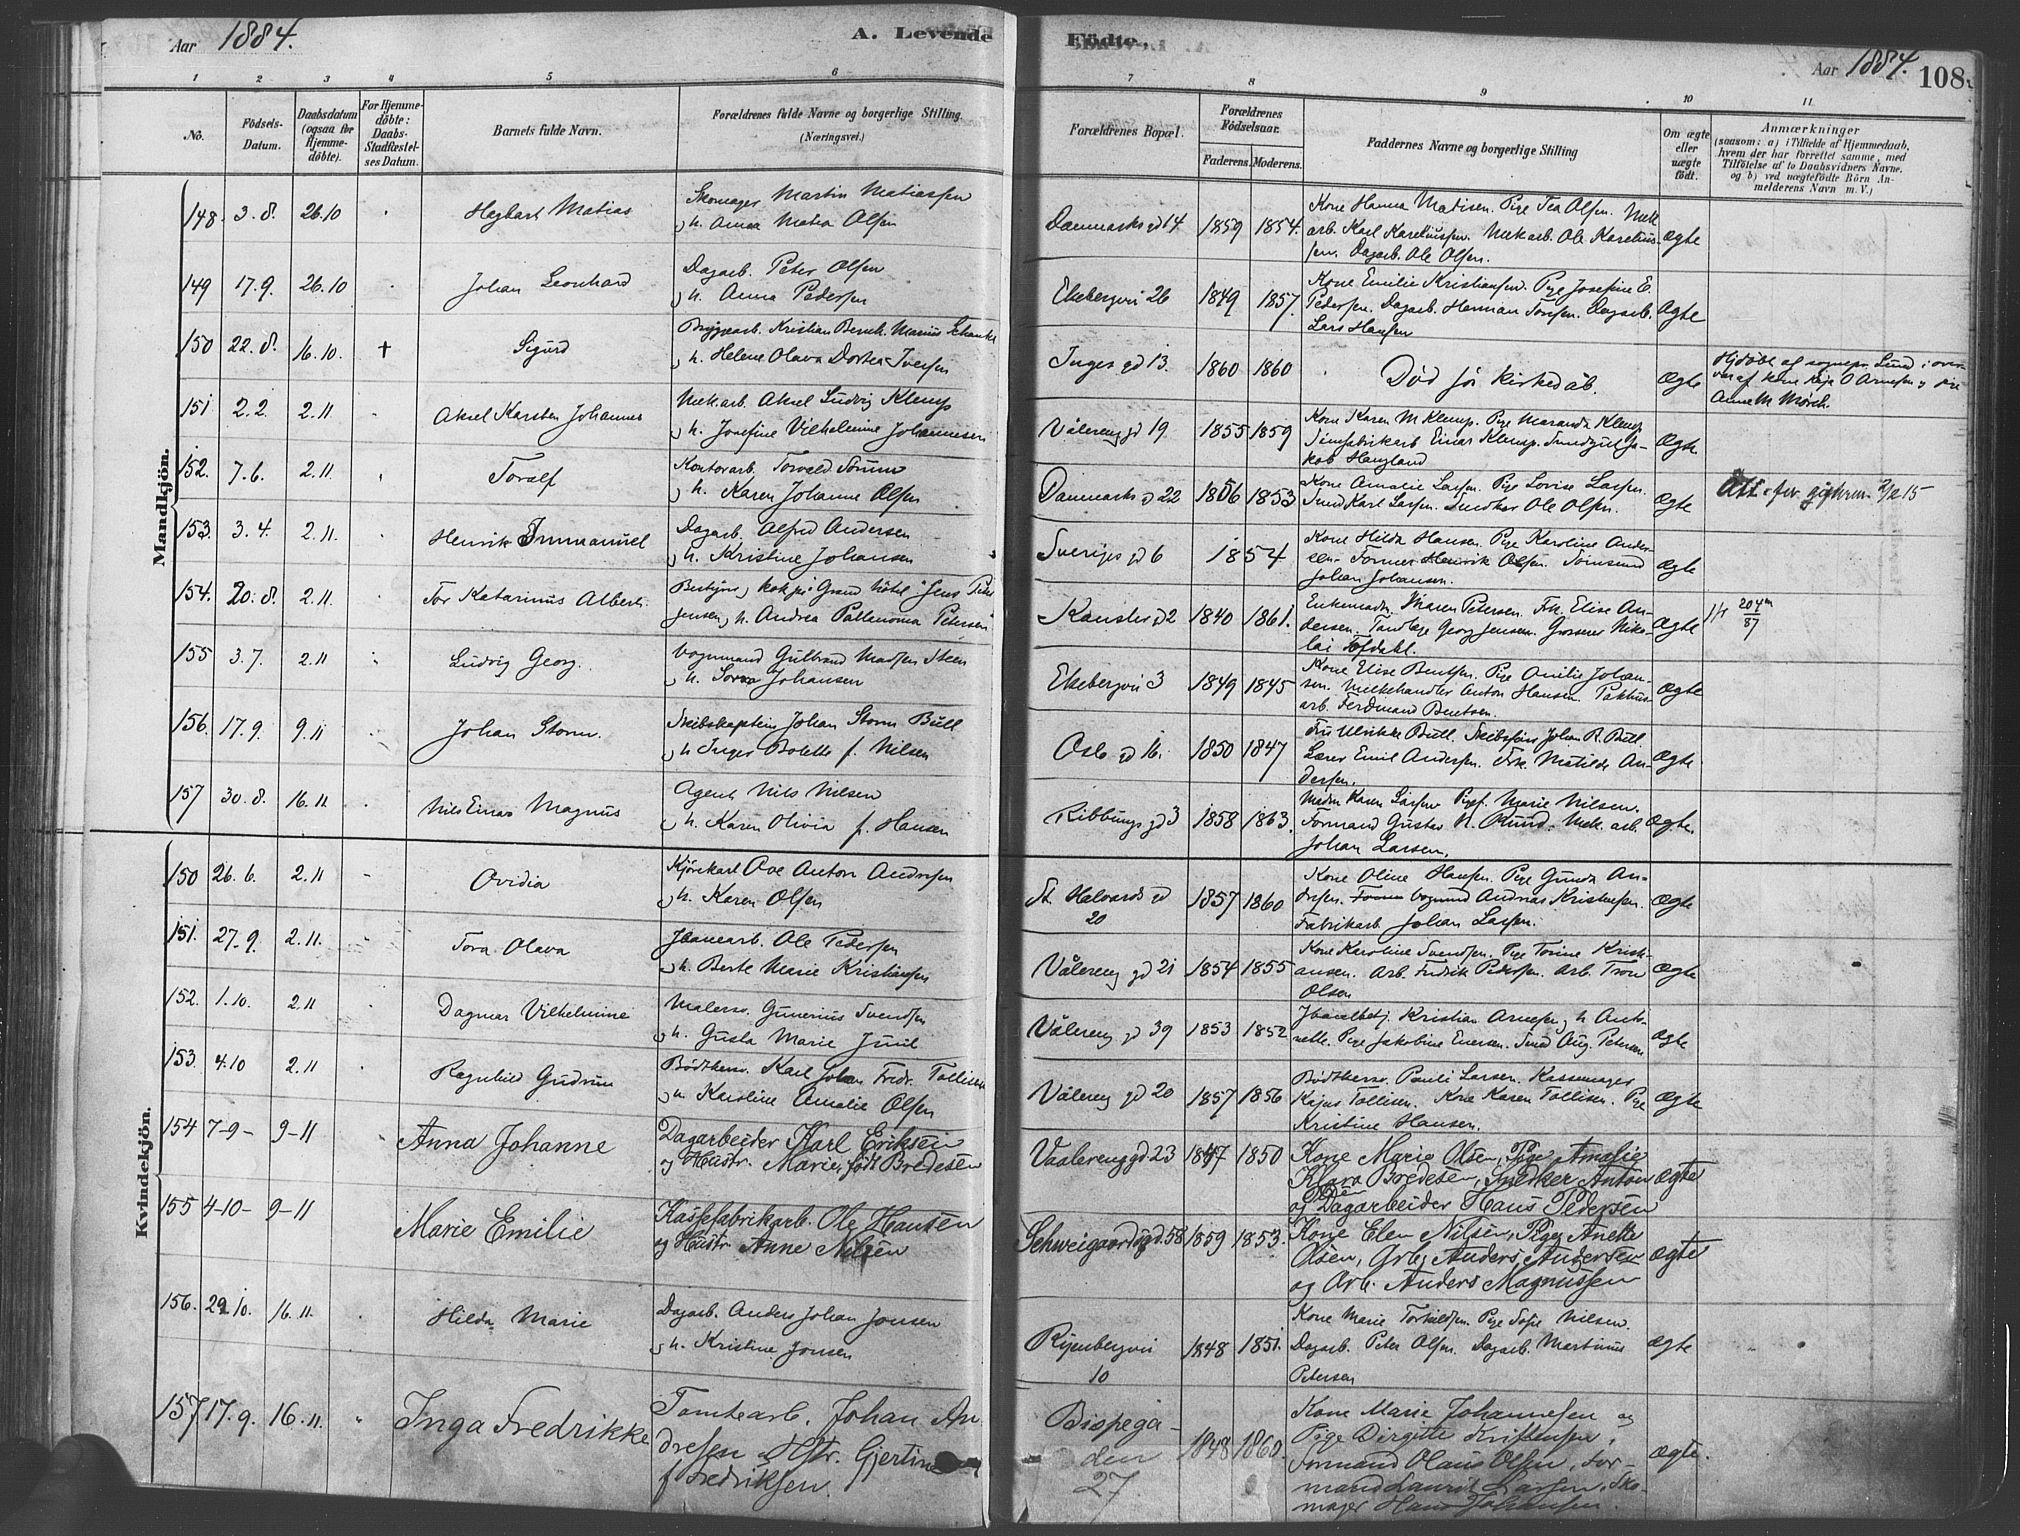 Aar 1884. A. Levende Födte. Aar 1884. 108.
1 2 3 4 5 6 7 8 9 10 11
No. Födsels-Datum. Daabsdatum (ogsaa for Hjemme-döbte). For Hjemme-döbte: Daabs-Stadfæstel-ses Datum. Barnets fulde Navn. Forældrenes fulde Navne og borgerlige Stilling (Næringsvei.) Forældrenes Bopæl. Forældrenes Födselsaar. Faderens. Moderens. Faddernes Navne og borgerlige Stilling Om ægte eller uægte födt. Anmærkninger
(saasom: a) i Tilfælde af Hjemmedaab,
hvem der har forrettet samme, med
Tilföielse af to Daabsvidners Navne.
og b) ved uægtefödte Börn An-
melderens Navn m. V.)
Mandkjön.
148. 3.8. 26.10 Hagbart Matias Skomager Martin Matiassen
h. Anna Matea Olsen
Danmarks gd 14 1859 1854. Kone Hanna Madisen. Pige Tea Olsen. Mek
arb. Karl Kareliussen. Mek arb. Ole Karelius-
sen. Dagarb. Ole Olsen. Ægte
149 17.9. 26.10 Johan Leonhard Dagarb. Peter Olsen
h. Anna Pedersen
Ekebergvei 26 1849 1857. Kone Emilie Kristiansen. Pige Josefine E.
Pedersen. Dagarb. Herman Torsen. Dagarb.
Lars Hansen Ægte
150 22.8. 16.10. † Sigurd Bryggearb. Kristian Bernh. Marius Schanke
h. Helene Olava Dortea Iversen
Inges gd 13. 1860 1860 Död för kirkedåb. Ægte Hjdöbt af sognepr. Lund
Anne M Mörch.
151 2.2. 2.11 Aksel Karsten Johannes Mek. arb. Aksel Ludvig Klemp
h. Josefine Vilhelmine Johannesen
Vålereng gd 19 1855 1859 Kone Karen M Klemp. Pige Maranda Klemp
Einar Klemp. Ja-
kob Haugland Ægte
152. 7.6. 2.11. Toralf Kontorarb. Torvald Sörum
h. Karen Johanne Olsen
Danmarks gd 22 1856 1853 Kone Amalie Larsen. Pige Lovise Larsen.
Smed Karl Larsen. Snedker Ole Olsen. Ægte Att. for giftern. 2/2 15
153. 3.4. 2.11. Henrik Immanuel Dagarb. Alfred Andersen
h. Kristine Johansen
Sveriges gd 6 1854 Kone Hilda Hansen. Pige Karoline Ander-
sen. Former Henrik Olsen. Tomsmed
Johan Johansen. Ægte
154. 20.8. 2.11. Tor Katarinus Albert. Bestyrer, kok på "Grand hôtel" Jens Peter
Jensen, h. Andrea Pallanoma Petersen
Kansler gd 2 1840 1861. Enkemadm. Maren Petersen. Frk. Elise An-
dersen. Tandlæge Georg Jensen. Grosserer Niko-
lai Tofdahl. Ægte 204m/87
155 3.7. 2.11 Ludvig Georg. Vognmand Gulbrand Madsen Steen
h. Johansen
Ekebergvei 3 1849 1845 Kone Elise Bentsen. Pige Amilie Johan-
sen. Melkehandler Anton Hansen. Pakhus-
arb. Ferdinand Bentsen. Ægte
156. 17.9. 9.11 Johan Storm. Skibskaptein Johan Storm Bull
h. Inger Bolette f. Nilsen
Oslo gd 16. 1850 1847 Fru Ulrikke Bull. Skibsförer Johan R. Bull.
Lærer Emil Andersen. Frk. Matilde An-
dersen. Ægte.
157 30.8. 16.11. Nils Einar Magnus Agent Nils Nilsen
h. Karen Olivia f. Hansen
Ribbungs gd 3 1858 1863. Madm Karen Larsen Pige Marie Nilsen.
Formand Gustav N. Rund. Mek. arb.
Johan Larsen. Ægte.
Kvindekjön.
150 26.6. 2.11 Ovidia Kjörekarl Ove Anton Andresen
h. Karen Olsen
St Halvards gd
20 1857 1860 Kone Oline Hansen. Pige Gunda An-
dresen. Vognmd Andreas Kristensen.
Fabrikarb Johan Larsen. Ægte
151. 27.9. 2.11. Tora Olava Jbanearb. Ole Pedersen
h. Berte Marie Kristiansen
Vålereng gd 21 1854 1855 Kone Karoline Svendsen. Pige Torine Krist-
iansen. Arb. Fredrik Pedersen. Arb. Tron
Olsen Ægte
152. 1.10. 2.11 Dagmar Vilhelmine Malersv. Gunerius Svendsen
h. Gusta Marie Juul
Vålereng gd 39 1853 1852 Jbanebetj. Kristian Arnesen, h Anto-
nette. Pige Jakobine Enersen. Smed Aug. Petersen Ægte
153. 4.10 2.11 Ragnhild Gudrun Bödkersv. Karl Johan Fredr. Tollisen
h. Karoline Amalie Olsen
Vålereng gd 20 1857 1856 Bödkersv. Pauli Larsen. Kassemager
Kajus Tollisen. Kone Karen Tollisen. Pige
Kristine Hansen. Ægte
154 7-9- 9-11 Anna Johanne Dagarbeider Karl Eriksen
og Hustr. Marie, født Bredesen
Vaalereng gd 23 1847 1850 Kone Marie Olsen, Pige Amalie
Klara Bredesen, Snedker Anton
og Dagarbeider Hans Pedersen ægte
155 4-10- 9-11 Marie Emilie Kassefabrikarb. Ole Hansen
og Hustr. Anne Nilsen
Schweigaardsgd. 58 1859 1853. Kone Elen Nilsen, Pige Anette
Olsen, Arb. Anders Andersen
og Arb. Anders Magnussen ægte
156. 29.10. 16.11. Hilda Marie Dagarb. Anders Johan Jonsen
h. Kristine Jonsen
Ryenbergvei
10 1848 1851. Kone Marie Torkildsen. Pige Sofie Nilsen.
Dagarb. Peter Olsen. Dagarb. Martinus
Petersen ægte
157 17.9. 16.11. Inga Fredrikke Tomtearb. Johan An
dresen og Hstr. Gjertine
f. Fredriksen.
Bispega-
den
27 1848 1860. Kone Marie Johannesen og
Pige Birgitte Kristensen,
Formand Olaus Olsen, For-
mand Laurit Larsen, Sko-
mager Hans Johansen. ægte.